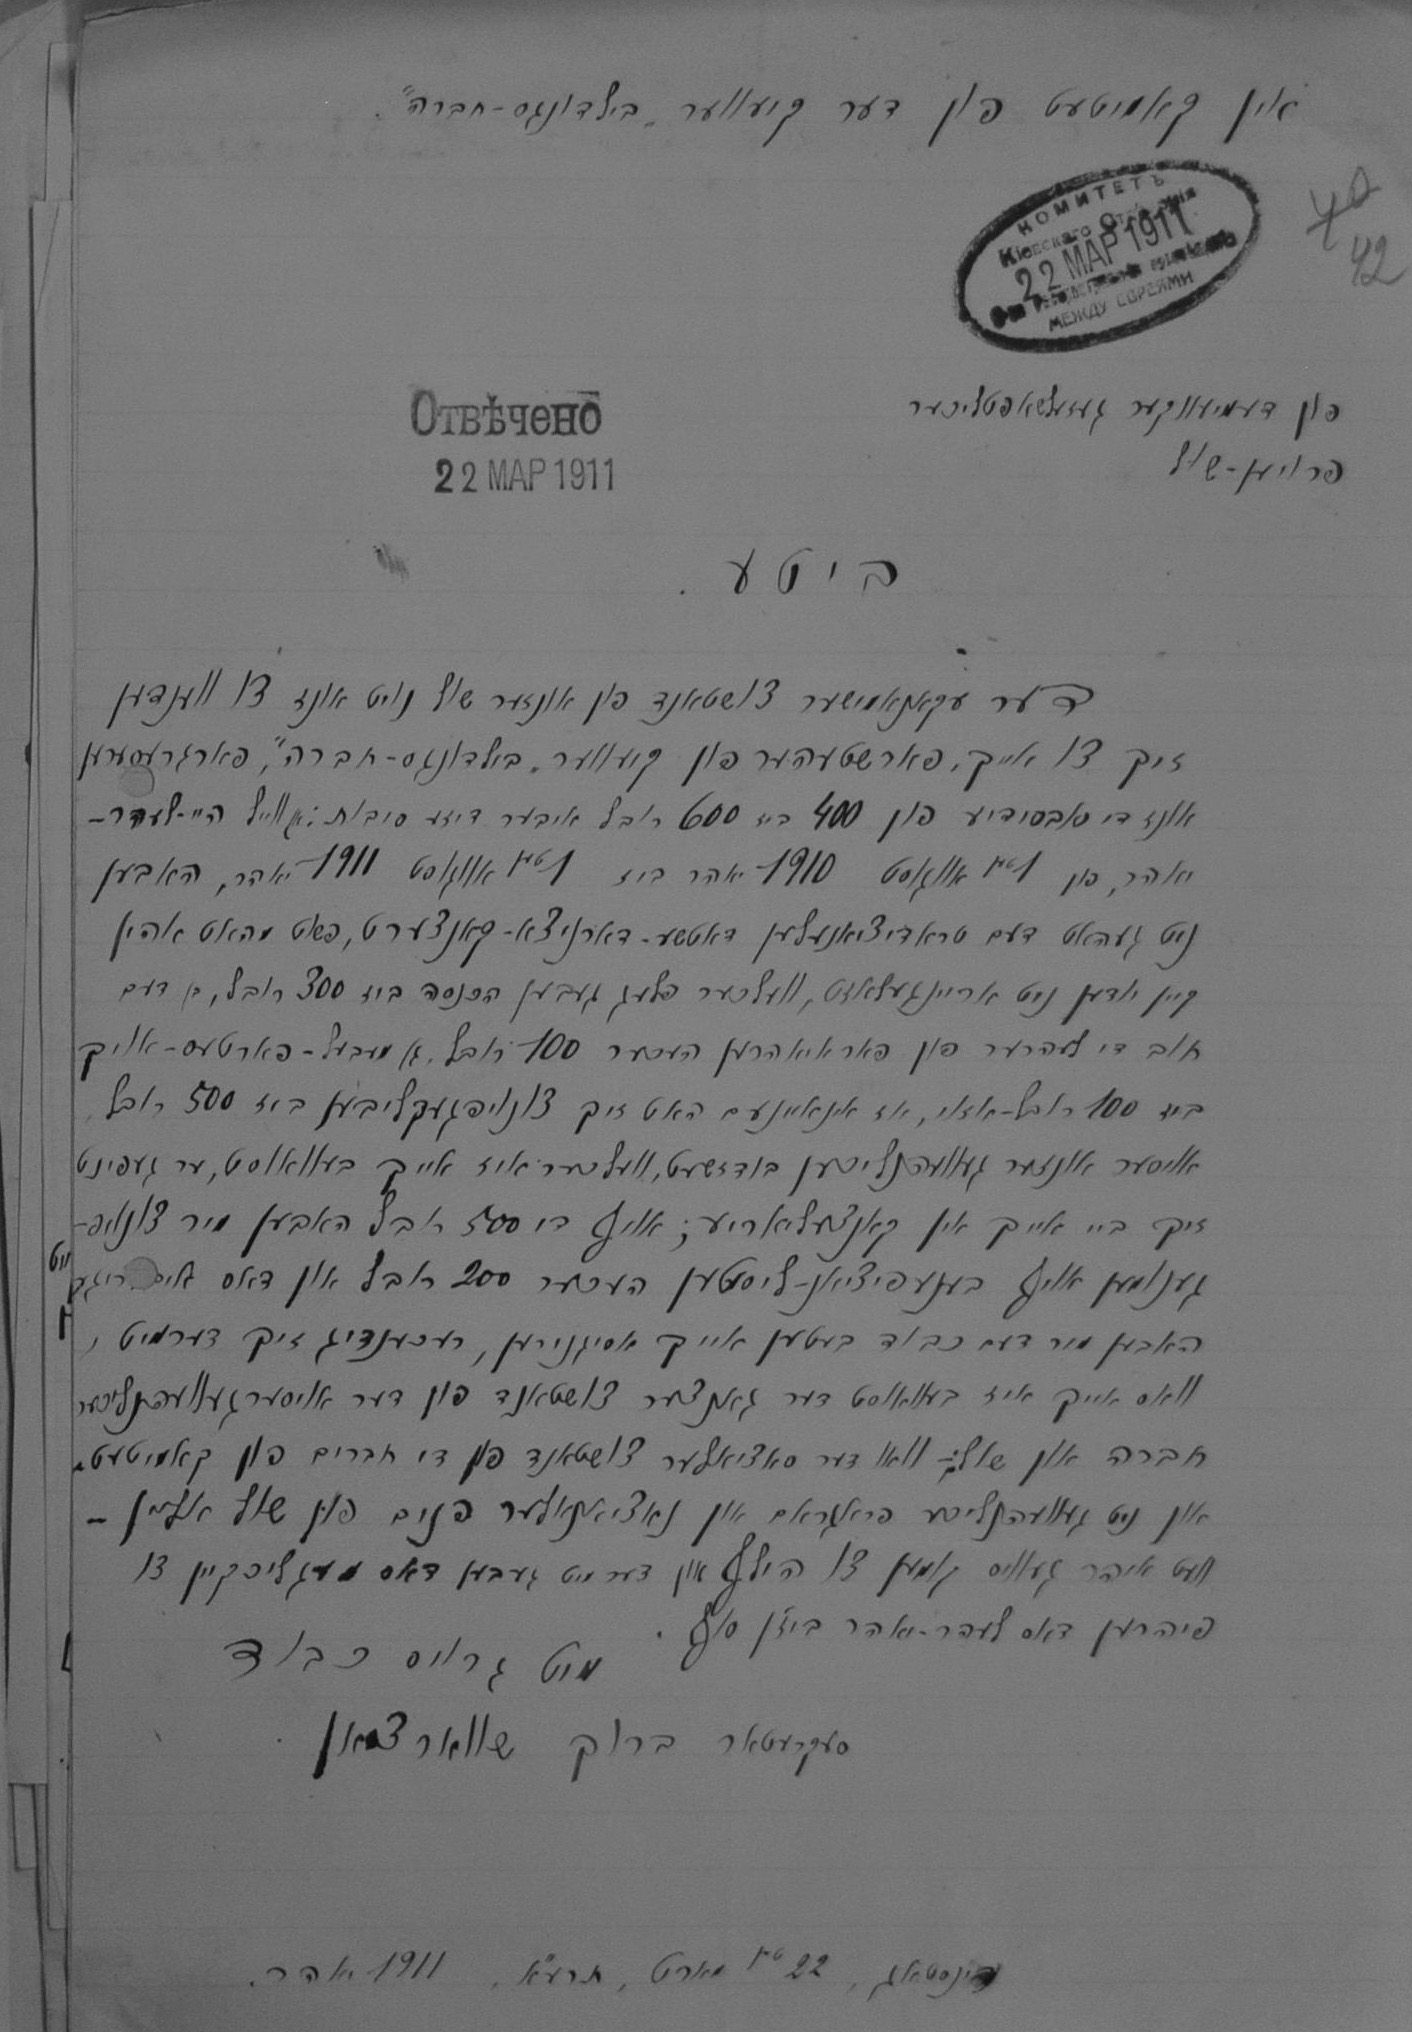 אין קאמיטעט פון דער קיעווער "בילדונגס-חברה".
КОМИТЕТЪ
Кіевскаго
22 МАР 1911
МЕЖДУ ЕВРЕЯМИ
40
42
Отвѣчено
22 МАР 1911
פון דעמיעווקער געזעלשאפטליכער
פרויען-שול
ביטע.
דער עקאנאמישער צושטאנד פון אונזער שול נויט אונז צו ווענדען
זיך צו אייך, פארשטעהער פון קיעווער "בילדונגס-חברה", פארגרעסערען
אונז די סובסידיע פון 400 ביז 600 רובל איבער דיזע סיבות: ווייל היי-לעהר-
יאהר, פון 1טן אווגוסט 1910 יאהר ביז 1טן אווגוסט 1911 יאהר, האבען
ניט געהאט דעם טראדיציאנעלען דאטשע-דארניצא-קאנצערט, פשוט מהאט אהין
קיין יודען ניט אריינגעלאזט, וועלכער פלעג געבען הכנסה ביז 300 רובל, דעם
חוב די לעהרער פון פאראיאהרען העכער 100 רובל, מעבעל-פארטעס-אויך
ביז 100 רובל-אזוי, אז אינאיינעם האט זיך צונויפגעקליבען ביז 500 רובל
אויסער אונזער געוועהנליכען בודזשעט, וועלכער איז אייך בעוואוסט, ער געפינט
זיך ביי אייך אין קאנצעליאריע; אויף די 500 רובל האבען מיר צונויפ-
גענומען אויף בענעפיציאן-ליסטען העכער 200 רובל און דאס
האבען מיר דעם כבוד בעטען אייך אסיגנירען, רעכענדיג זיך דערמיט,
וואס אייך איז בעוואוסט דער גאנצער צושטאנד פון דער אויסערגעוועהנליכער
חברה און שול: דער סאציאלער צושטאנד פון די חברים פון קאמיטעט
און ניט געוועהנליכע פראגראם און נאציאנאלער פנים פון שול אליין –
וועט איהר געוויס קומען צו הילף און דערמיט געבען דאס מעגליכקיין צו
פיהרען דאס לעהר-יאהר ביזן סוף.
מיט גרויס כבוד
סעקרעטאר ברוך שווארצמאן
דינסטאג, 22טן מארט, תרע"א, 1911 יאהר.